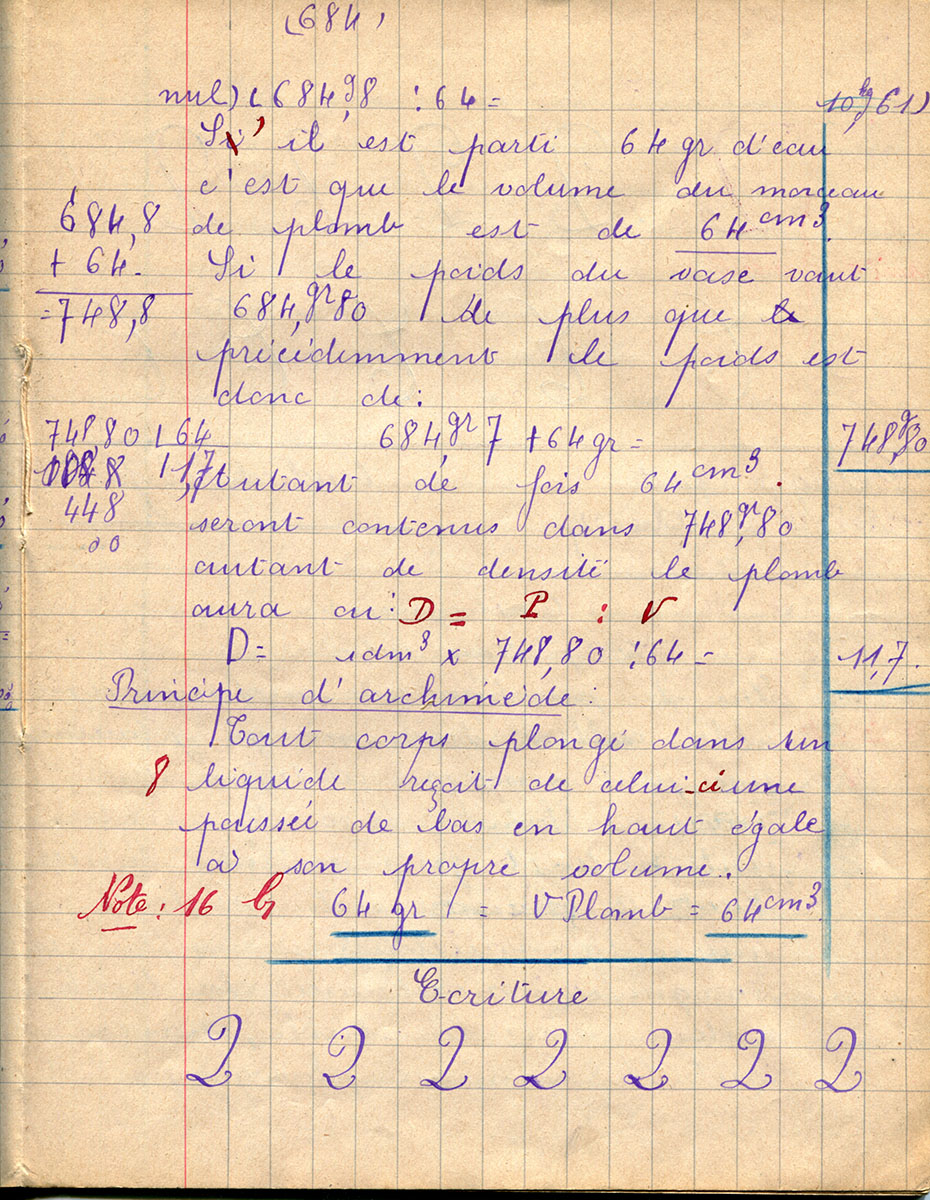 (684,
nul) (684,g8 : 64 = 10,kg61)
Si' il est parti 64 gr d'eau
c'est que le volume du morceau
684,8 de plomb est de 64 cm3.
+ 64. Si le poids du vase vaut
=748,8 684,gr80 de plus que le
précédemment le poids est
donc de:
748,80 | 64 684,gr7 + 64gr = 748,g80
108 8 11,7 Autant de fois 64 cm3.
448 seront contenus dans 748,gr80
00 autant de densité le plomb
aura eu: D = P : V
D = 1dm3 x 748,80 : 64 = 11,7.
Principe d'archimède:
Tout corps plongé dans un
8 liquide reçoit de celui-ci une
pousseé de bas en haut égale
à son propre volume.
Note: 16 b 64 gr = V Plomb = 64 cm3.
Ecriture
2 2 2 2 2 2 2